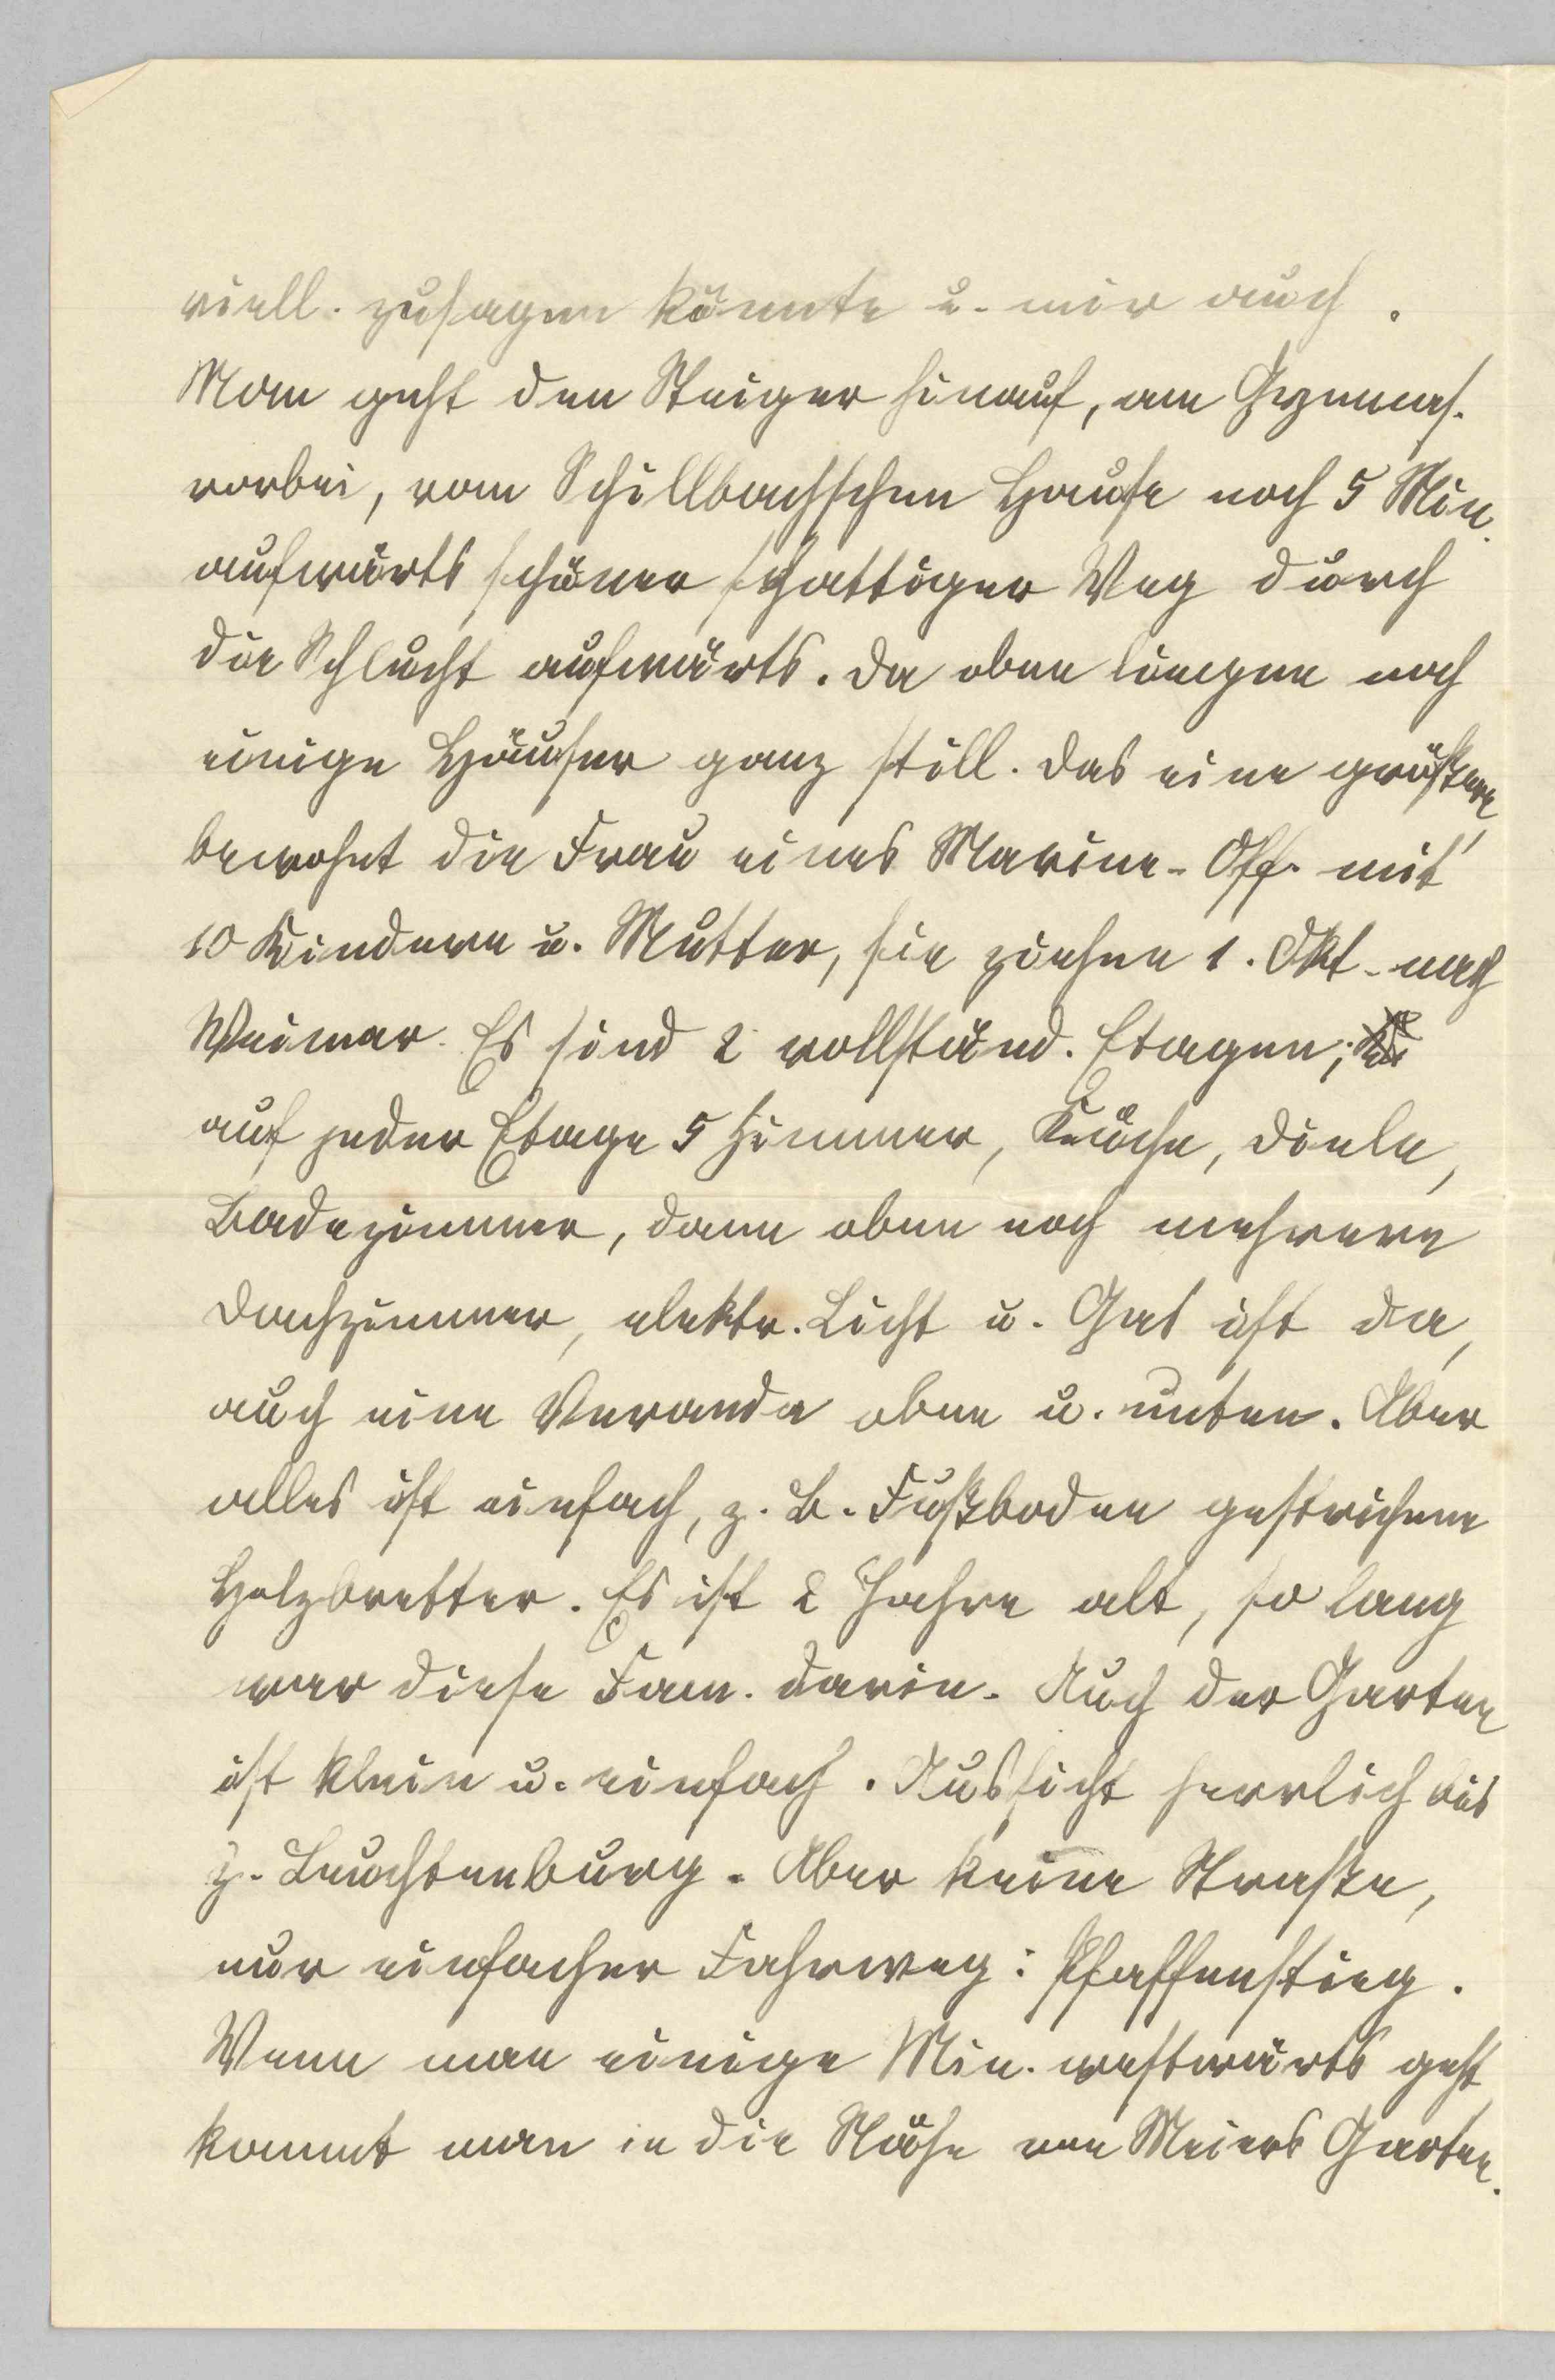 viell. zusagen könnte u. mir auch.
Man geht den Steiger hinauf, am Gymnas.
vorbei, vom Schillbachschen Hause noch 5 Min.
aufwärts, schöner schattiger Weg durch
die Schlucht aufwärts. Da oben liegen noch
einige Häuser ganz still. Das eine größere,
bewohnt die Frau eines Marine-Off. mit
10 Kindern u. Mutter, sie ziehen 1. Okt. nach
Weimar. Es sind 2 vollständ. Etagen;
auf jeder Etage 5 Zimmer, Küche, Diele,
Badezimmer, dann oben noch mehrere
Dachzimmer, elektr. Licht u. Gas ist da,
auch eine Veranda oben u. unten. Aber
alles ist einfach, z. B. Fußboden gestrichene
Holzbretter. Es ist 2 Jahre alt, so lang
war diese Fam. darin. Auch der Garten
ist klein u. einfach. Aussicht herrlich bis
z. Leuchtenburg. Aber keine Straße,
nur einfacher Fahrweg: Pfaffenstieg.
Wenn man einige Min. westwärts geht
kommt man in die Nähe von Meiers Garten.